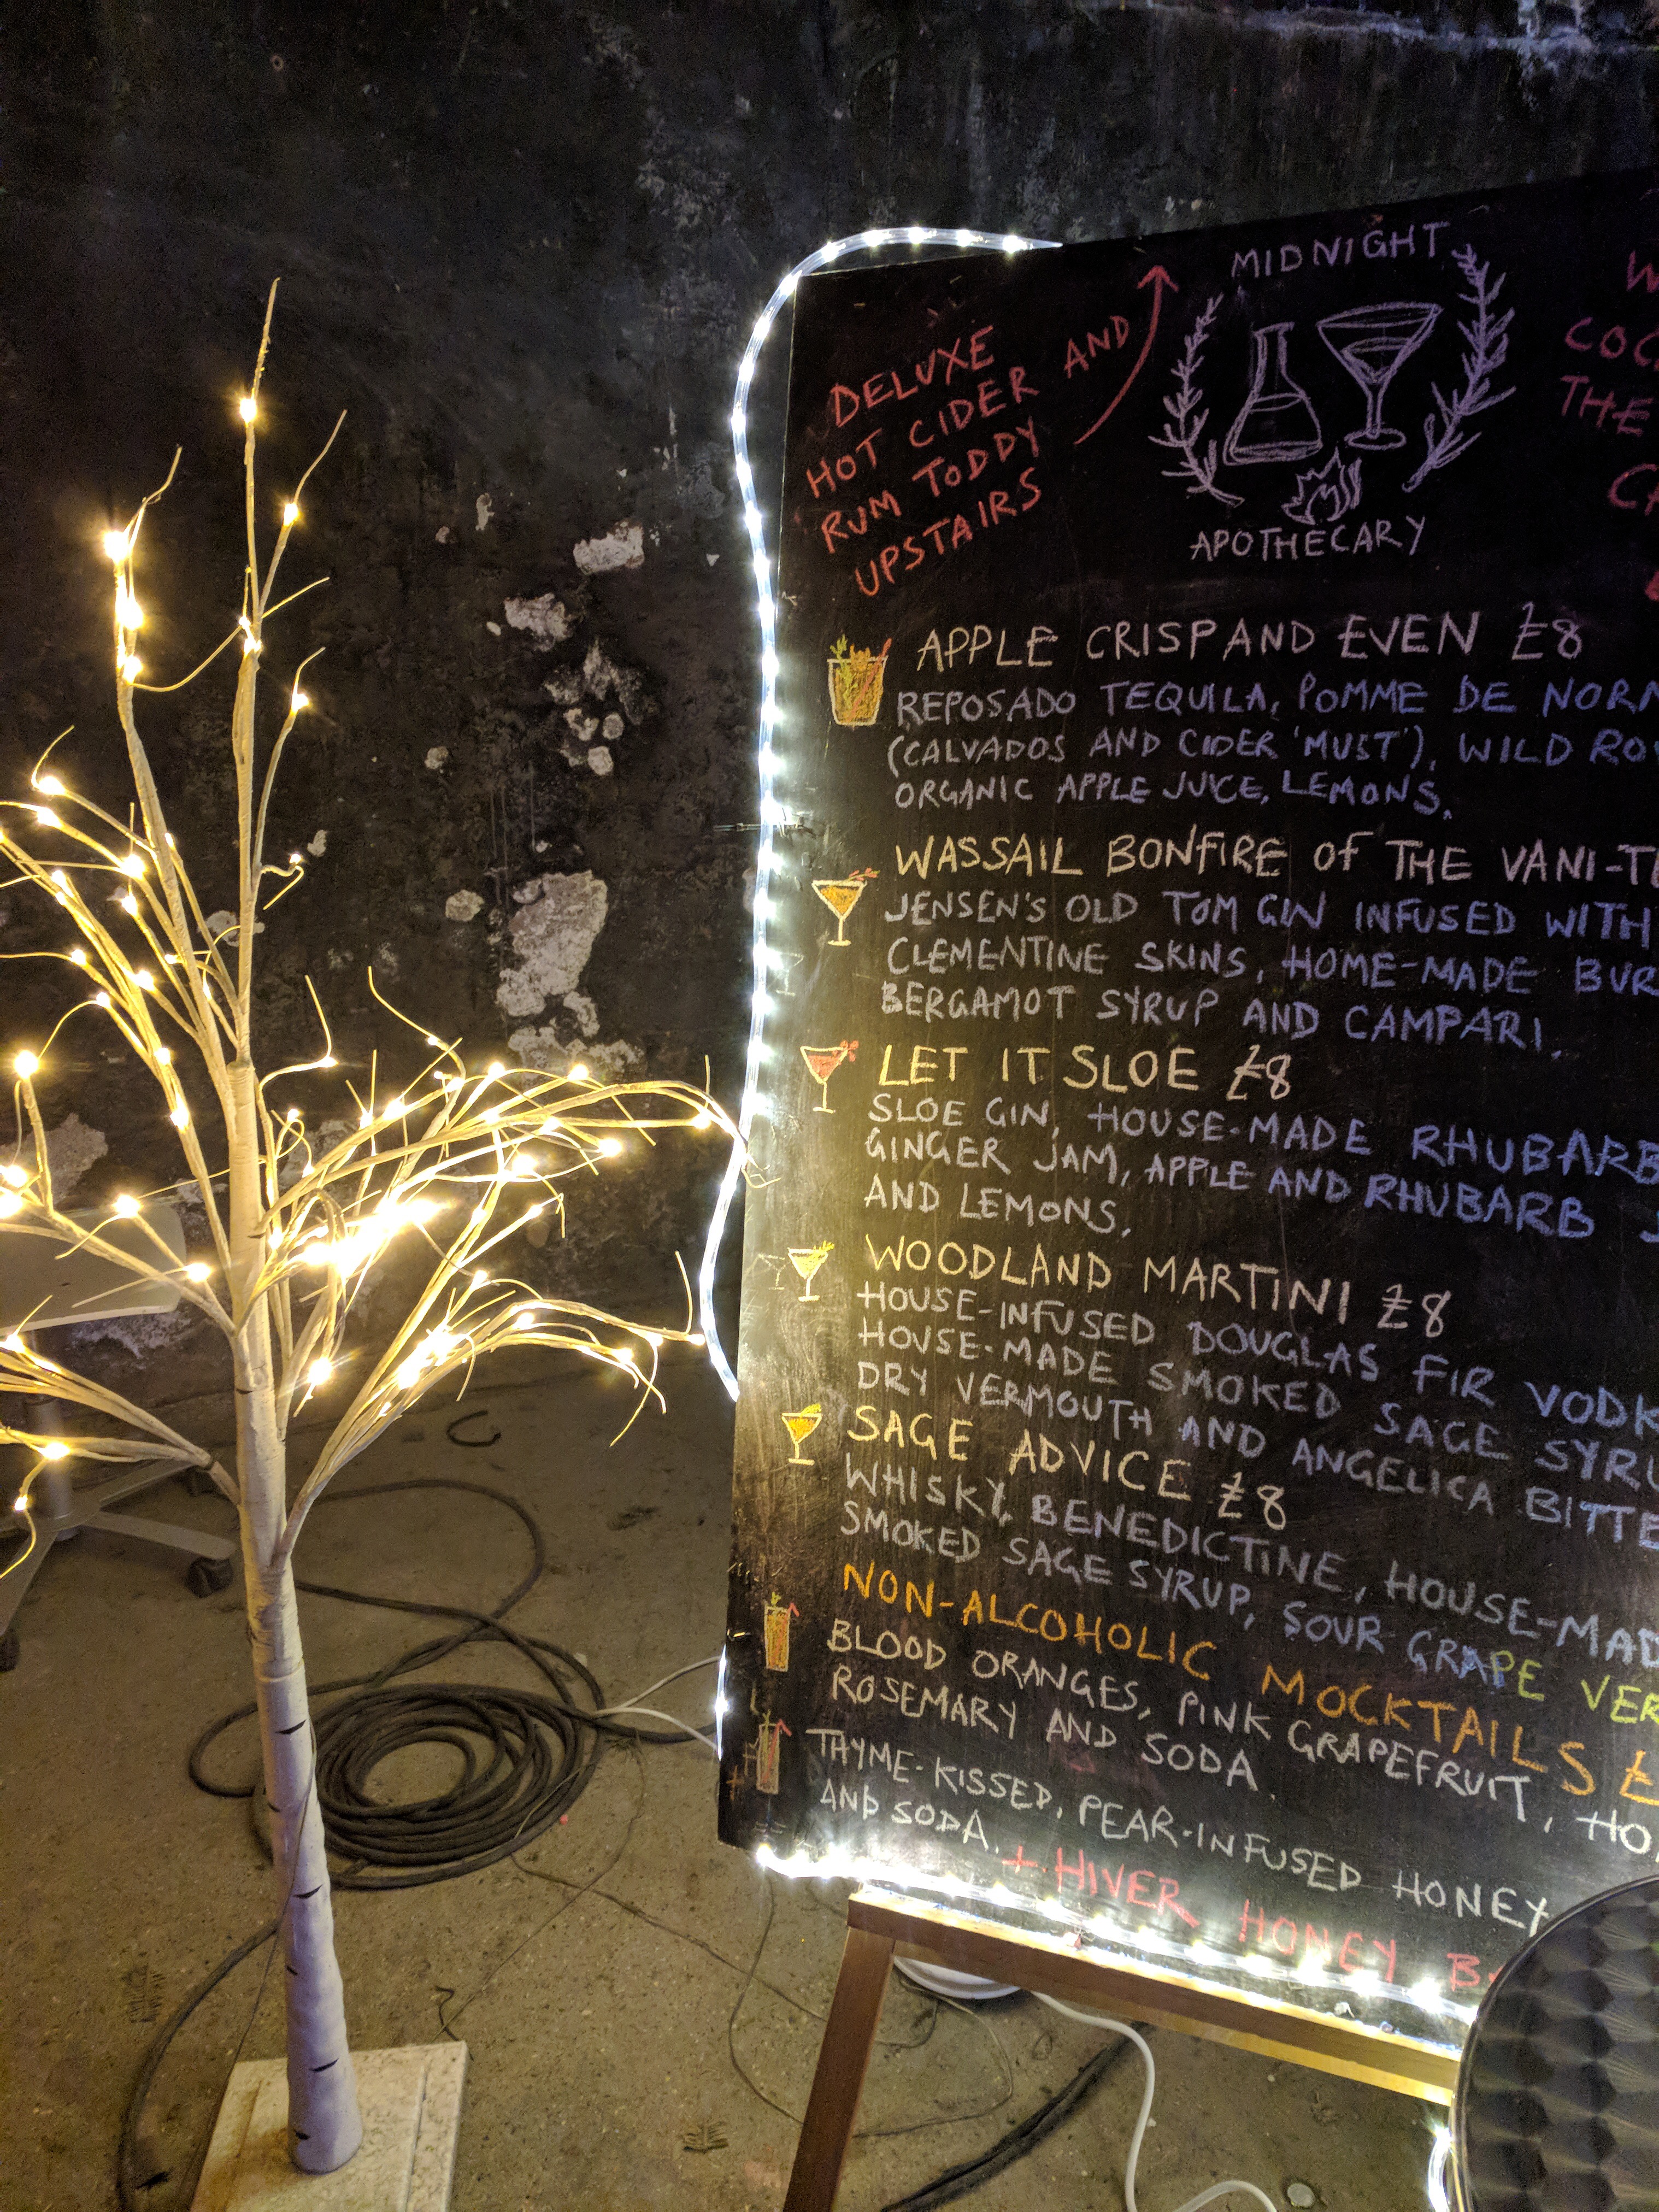 MIDNIGHT
DELUXE
HOT CIDER AND
RUM TODDY
UPSTAIRS
THE
APOTHECARY
APPLE CRISP AND EVEN £8
REPOSADO TEQUILA, POMME DE
(CALVADOS AND CIDER 'MUST'), WILD
ORGANIC APPLE JUICE, LEMONS.
WASSAIL BONFIRE OF THE
JENSEN'S OLD TOM GIN INFUSED WITH
CLEMENTINE SKINS, HOME-MADE
BERGAMOT SYRUP AND CAMPARI.
LET IT SLOE £8
SLOE GIN, HOUSE-MADE RHUBARB
GINGER JAM, APPLE AND RHUBARB
AND LEMONS.
WOODLAND MARTINI £8
HOUSE-INFUSED DOUGLAS FIR
HOUSE-MADE SMOKED SAGE
DRY VERMOUTH AND ANGELICA
SAGE ADVICE £8
WHISKY, BENEDICTINE,
SMOKED SAGE SYRUP, SOUR GRAPE
NON-ALCOHOLIC MOCKTAILS £
BLOOD ORANGES, PINK GRAPEFRUIT,
ROSEMARY AND SODA.
THYME-KISSED, PEAR-INFUSED HONEY
AND SODA.
+ HIVER HONEY